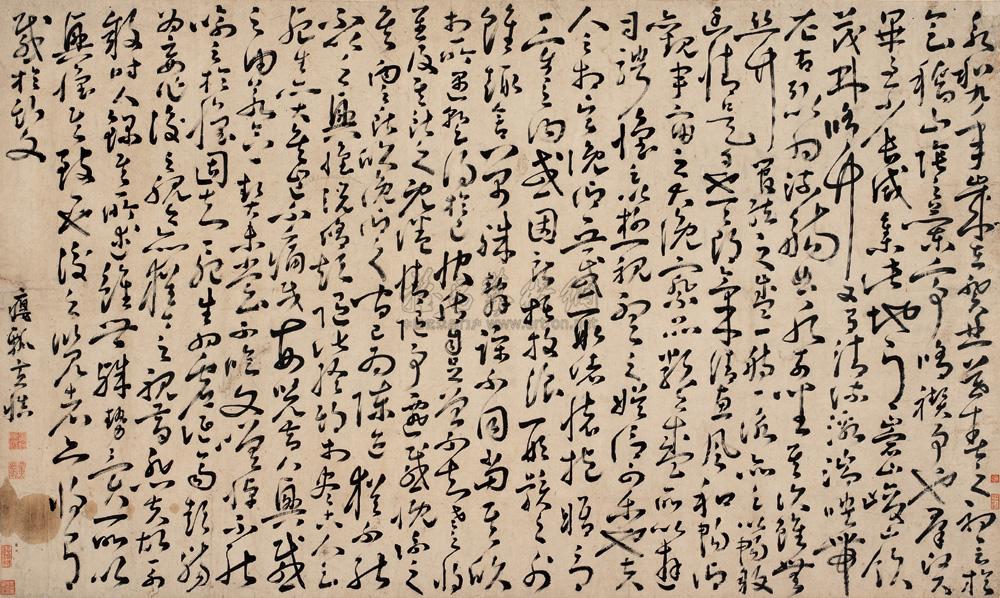 永和九年歲在癸丑暮春之初會於
會稽山陰之蘭亭脩禊事也群賢
畢至少長咸集此地有崇山峻領
茂林脩竹又有清流激湍映帶
左右引以為流觴曲水列坐其次雖無
絲竹管弦之盛一觴一詠亦足以暢敘
幽情是日也天朗氣清惠風和暢仰
觀宇宙之大俯察品類之盛所以遊
目騁懷足以極視聽之娛信可樂也夫
人之相與俯仰一世或取諸懷抱晤言
一室之內或因寄所託放浪形骸之外
雖趣舍萬殊靜躁不同當其欣
於所遇暫得於己快然自足曾不知老之將
至及其所之既倦情隨事遷感慨係之
矣向之所欣俯仰之間已為陳迹猶不能
不以之興懷況脩短隨化終期於盡古人云
死生亦大矣豈不痛哉每覽昔人興感
之由若合一契未嘗不臨文嗟悼不能
喻之於懷固知一死生為虛誕齊彭殤
為妄作後之視今亦猶今之視昔悲夫故列
敘時人錄其所述雖世殊事異所以
興懷其致一也後之覽者亦將有
感於斯文
癭瓢黃慎